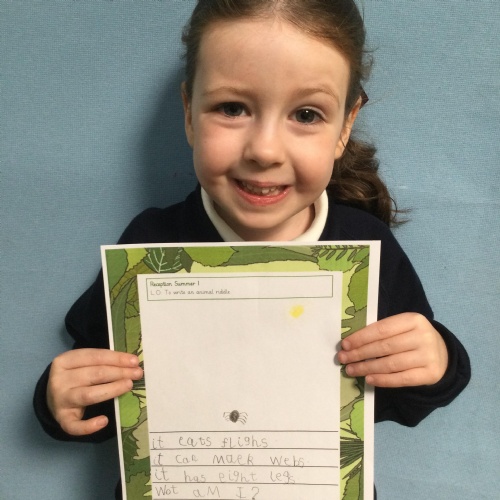 Reception Summer 1
L.O. To write an animal riddle.
it eats flighs
it cae maek webs
it has eight leg
Wot aM I?